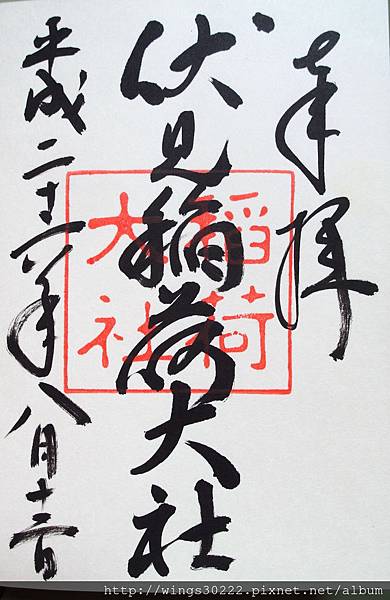 奉拝
伏見稲荷大社
稲荷
大社
平成二十六年八月十二日
http://wings30222.pixnet.net/album